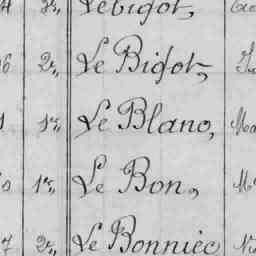 4 2e,, Lebigot,
6 2e,, Le Bigot,
1e,, Le Blanc,
1e,, Le Bon,
7 2e,, Le Bonniec